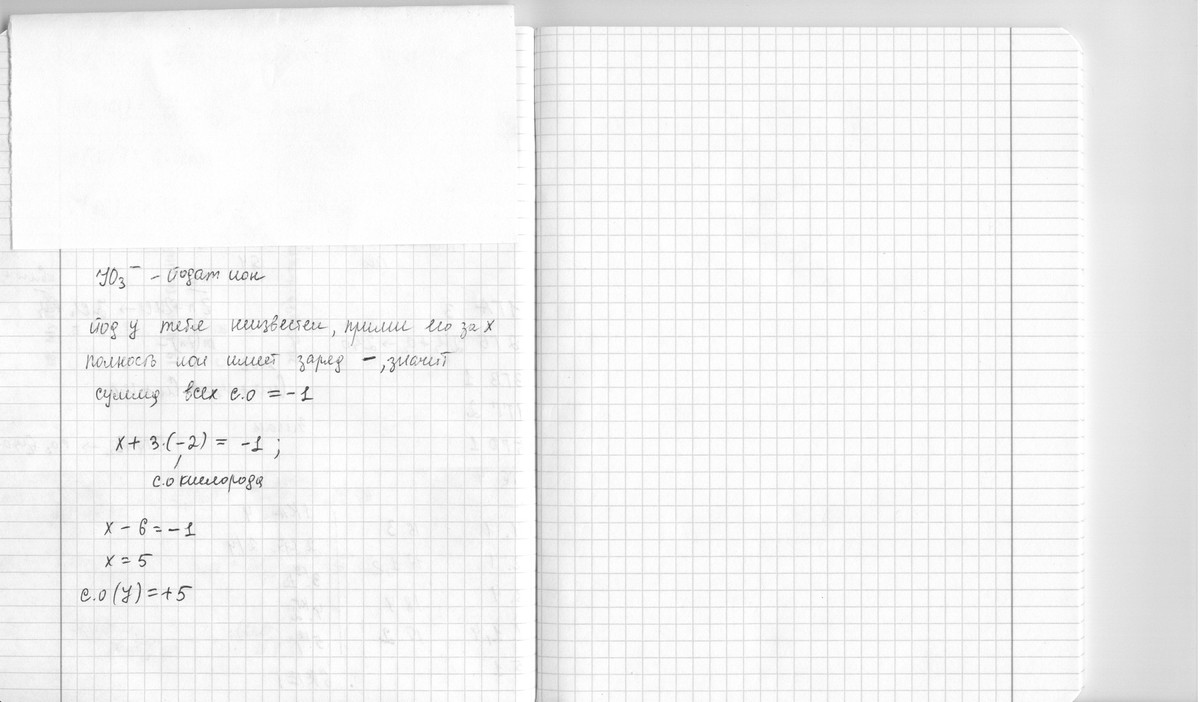 JO₃⁻ – йодат ион
йод у тебя неизвестен, прими его за x
полность ион имеет заряд –, значит
сумма всех с.о = -1
x + 3·(-2) = -1 ;
с.о кислорода
x - 6 = -1
x = 5
с.о (J) = +5